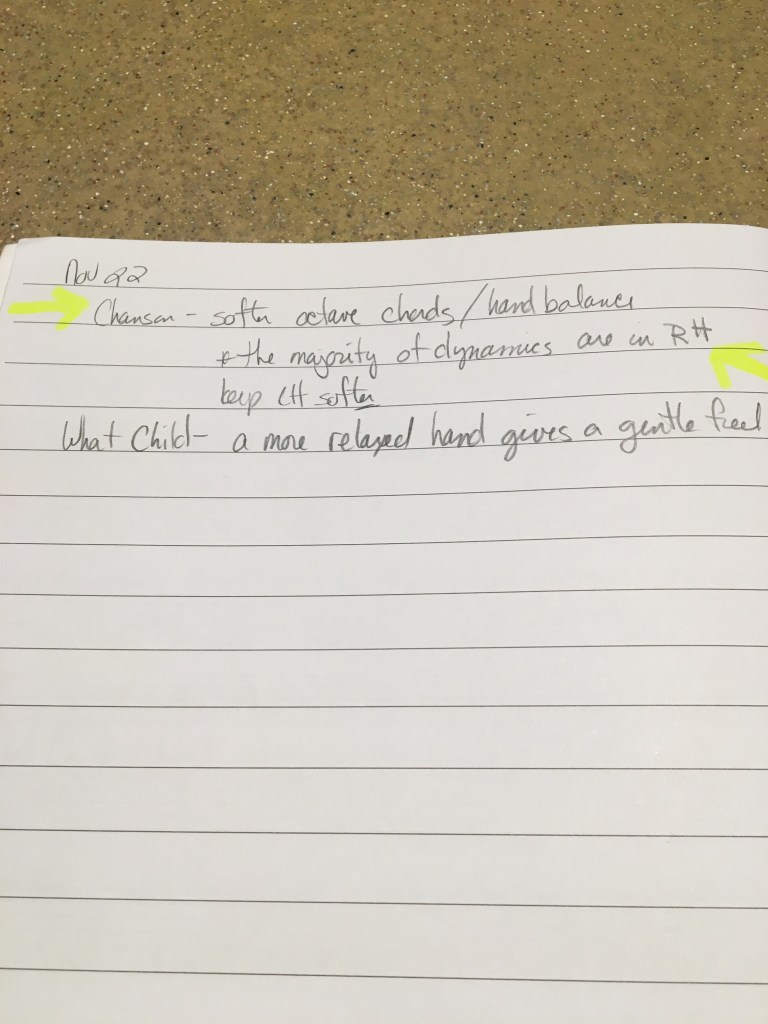 Nov 22
Chanson - softer octave chords/hand balance
* the majority of dynamics are in RH
keep LH softer
What Child - a more relaxed hand gives a gentle feel